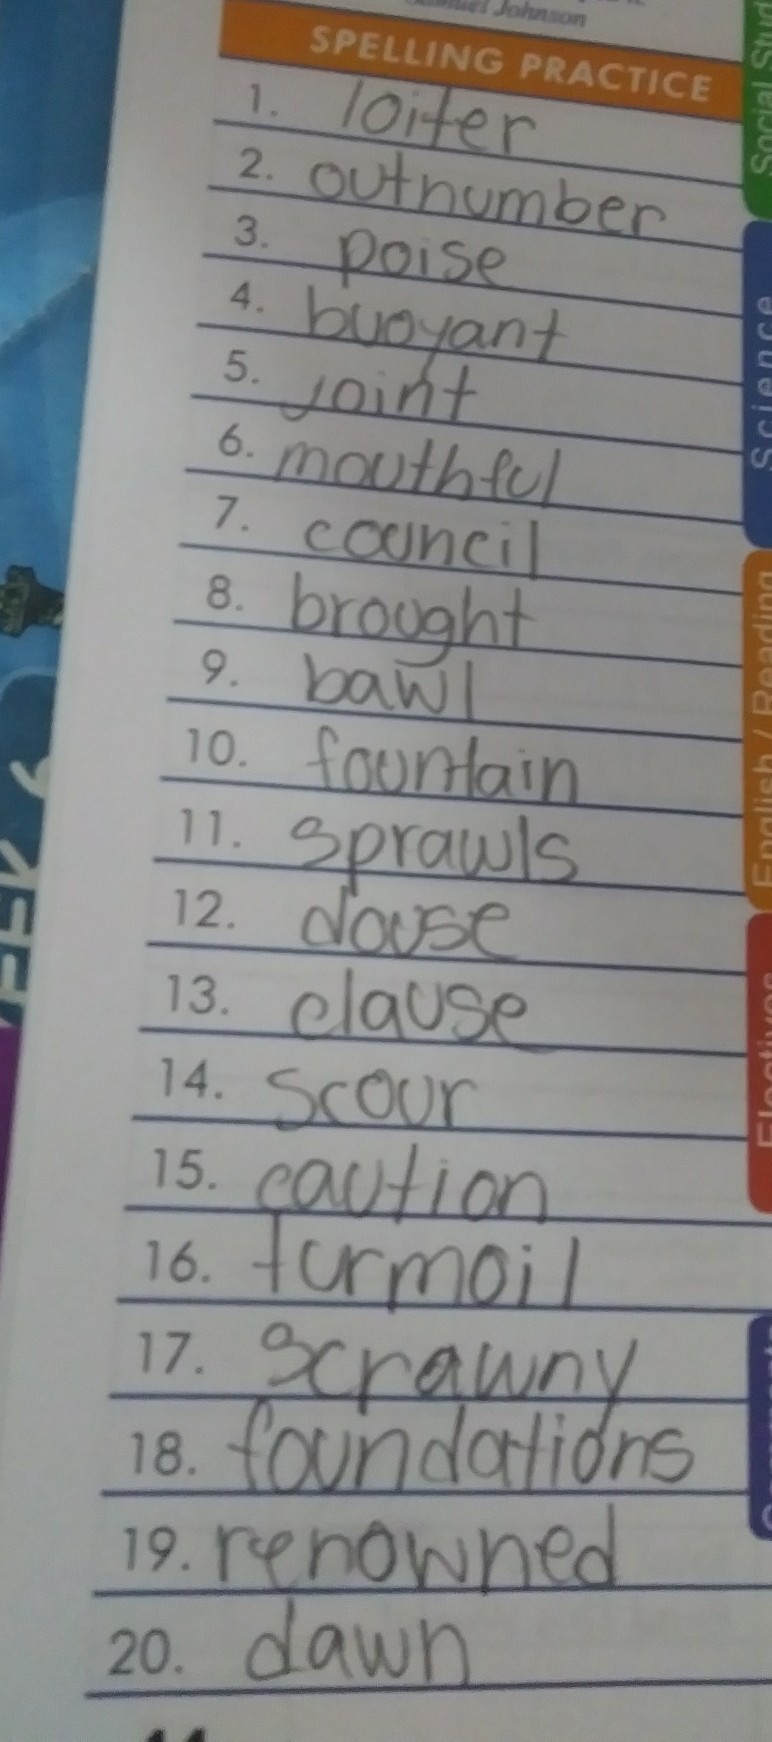 Samuel Johnson
SPELLING PRACTICE
1. loiter
2. outnumber
3. poise
4. buoyant
5. joint
6. mouthful
7. council
8. brought
9. bawl
10. fountain
11. sprawls
12. douse
13. clause
14. scour
15. caution
16. turmoil
17. scrawny
18. foundations
19. renowned
20. dawn
Social Stud
Science
English / Reading
Electives